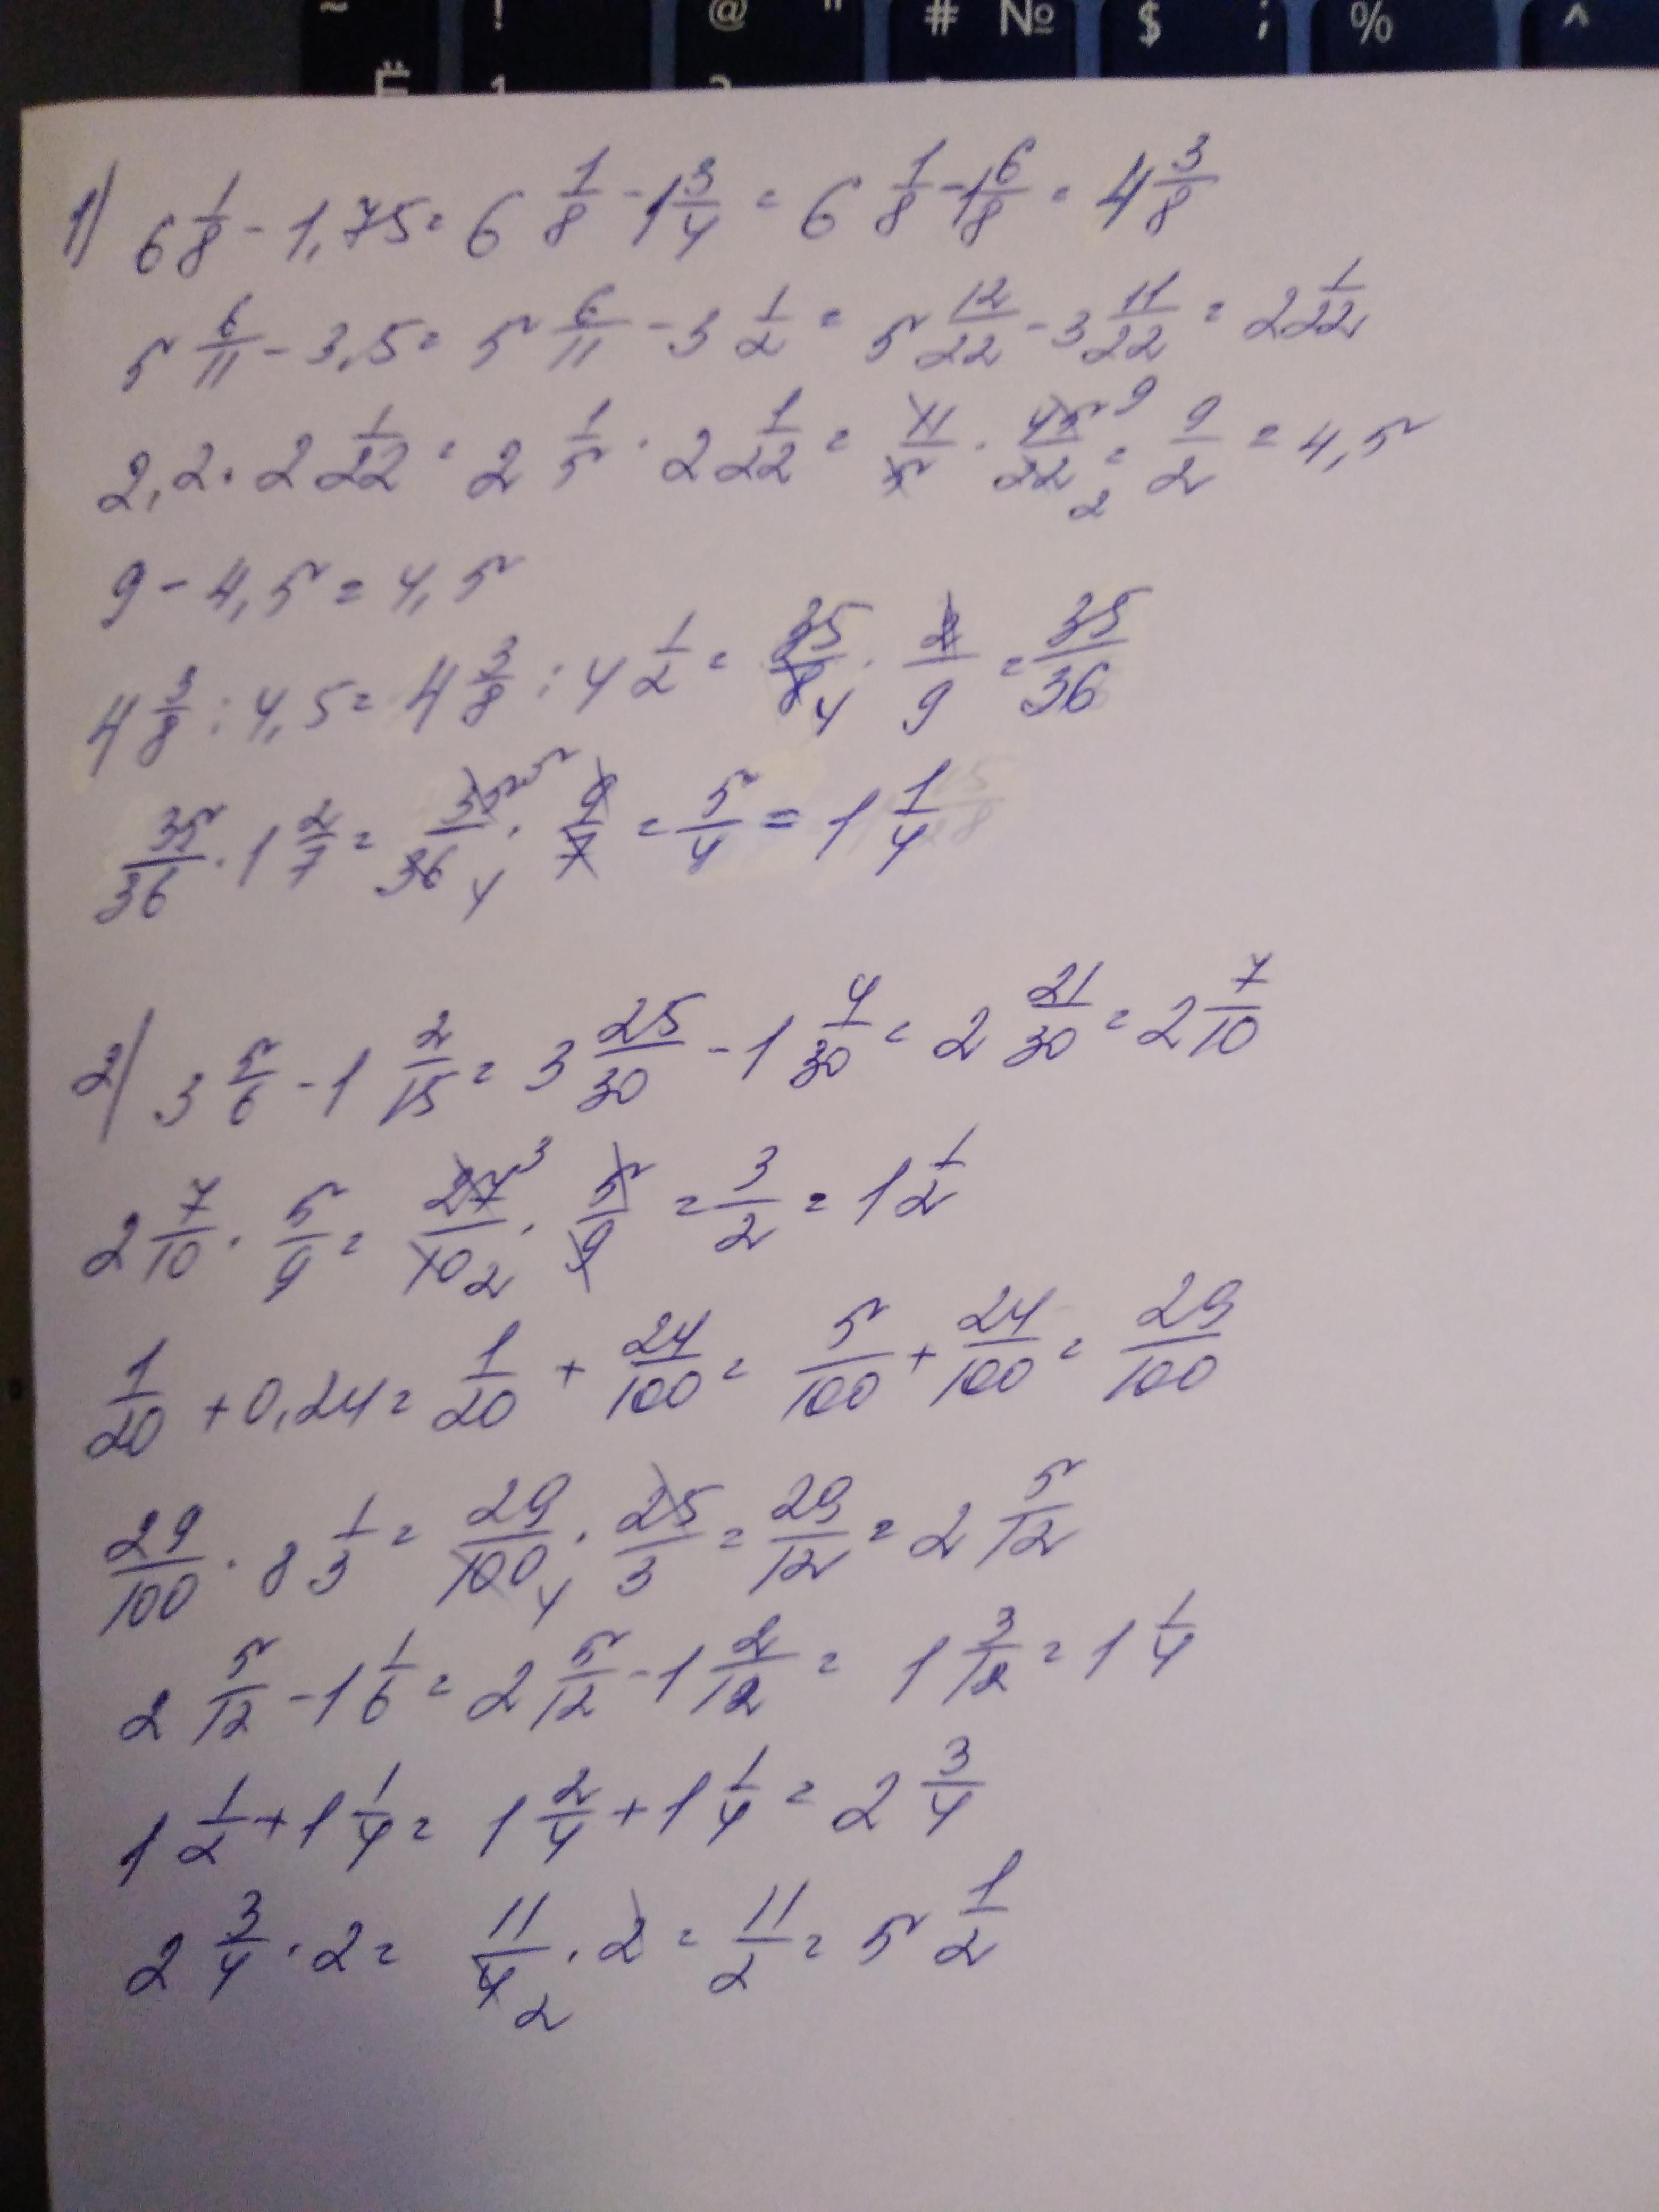 ~ ! @ " # № $ ; % ^
Ё 1 2
1) 6 1/8 - 1,75 = 6 1/8 - 1 3/4 = 6 1/8 - 1 6/8 = 4 3/8
5 6/11 - 3,5 = 5 6/11 - 3 1/2 = 5 12/22 - 3 11/22 = 2 1/22
2,2 · 2 1/22 = 2 1/5 · 2 1/22 = 11/5 · 45 9/22 2 = 9/2 = 4,5
9 - 4,5 = 4,5
4 3/8 : 4,5 = 4 3/8 : 4 1/2 = 35/8 4 · 2/9 = 35/36
35/36 · 1 2/7 = 35 5/36 4 · 9/7 = 5/4 = 1 1/4
2) 3 5/6 - 1 2/15 = 3 25/30 - 1 4/30 = 2 21/30 = 2 7/10
2 7/10 · 5/9 = 27 3/10 2 · 5/9 = 3/2 = 1 1/2
1/20 + 0,24 = 1/20 + 24/100 = 5/100 + 24/100 = 29/100
29/100 · 8 1/3 = 29/100 4 · 25/3 = 29/12 = 2 5/12
2 5/12 - 1 1/6 = 2 5/12 - 1 2/12 = 1 3/12 = 1 1/4
1 1/2 + 1 1/4 = 1 2/4 + 1 1/4 = 2 3/4
2 3/4 · 2 = 11/4 2 · 2 = 11/2 = 5 1/2